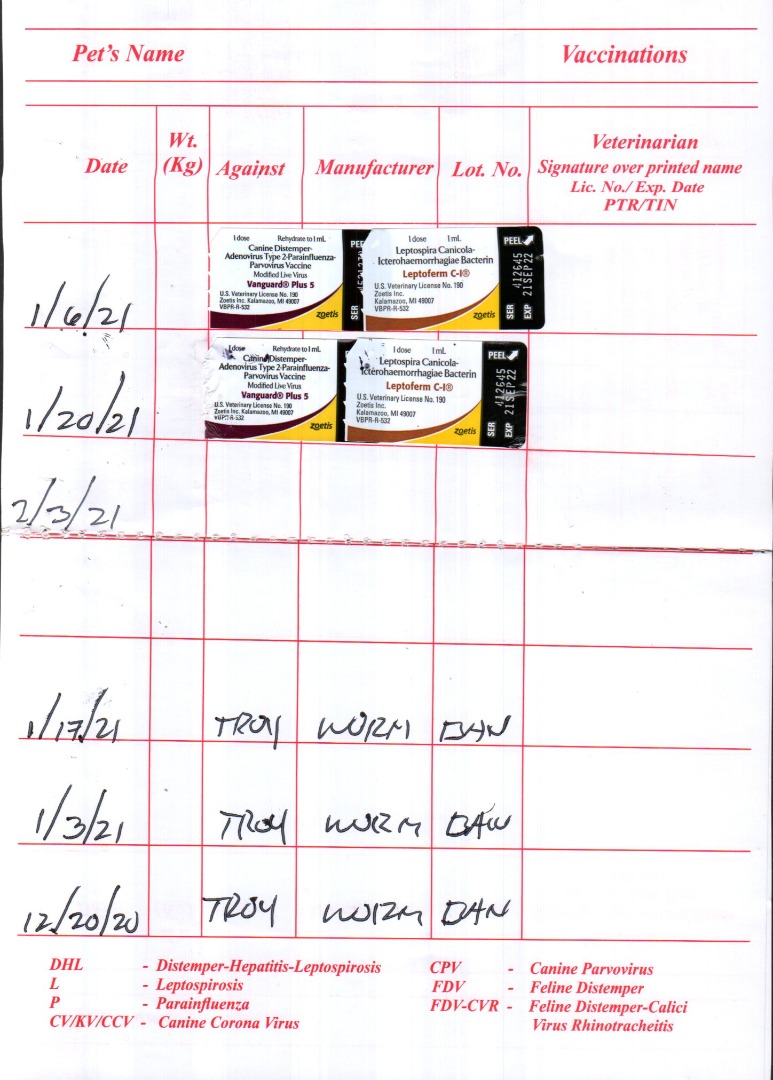 Pet's Name Vaccinations
Date Wt. (Kg) Against Manufacturer Lot. No. Veterinarian
Signature over printed name
Lic. No./ Exp. Date
PTR/TIN
1/6/21
1 dose Rehydrate to 1 mL
Canine Distemper-
Adenovirus Type 2-Parainfluenza-
Parvovirus Vaccine
Modified Live Virus
Vanguard® Plus 5
U.S. Veterinary License No. 190
Zoetis Inc.
Kalamazoo, MI 49007
VBPR-R-532
zoetis
SER
1 dose 1 mL
Leptospira Canicola-
Icterohaemorrhagiae Bacterin
Leptoferm C-I®
U.S. Veterinary License No. 190
Zoetis Inc.
Kalamazoo, MI 49007
VBPR-R-532
zoetis
PEEL
SER 412645
EXP 21SEP22
1/20/21
1 dose Rehydrate to 1 mL
Canine Distemper-
Adenovirus Type 2-Parainfluenza-
Parvovirus Vaccine
Modified Live Virus
Vanguard® Plus 5
U.S. Veterinary License No. 190
Zoetis Inc.
Kalamazoo, MI 49007
VBPR-R-532
zoetis
1 dose 1 mL
Leptospira Canicola-
Icterohaemorrhagiae Bacterin
Leptoferm C-I®
U.S. Veterinary License No. 190
Zoetis Inc.
Kalamazoo, MI 49007
VBPR-R-532
zoetis
PEEL
SER 412645
EXP 21SEP22
2/3/21
1/17/21 TROY WORM BAN
1/3/21 TROY WORM BAN
12/20/20 TROY WORM BAN
DHL - Distemper-Hepatitis-Leptospirosis CPV - Canine Parvovirus
L - Leptospirosis FDV - Feline Distemper
P - Parainfluenza FDV-CVR - Feline Distemper-Calici
CV/KV/CCV - Canine Corona Virus Virus Rhinotracheitis